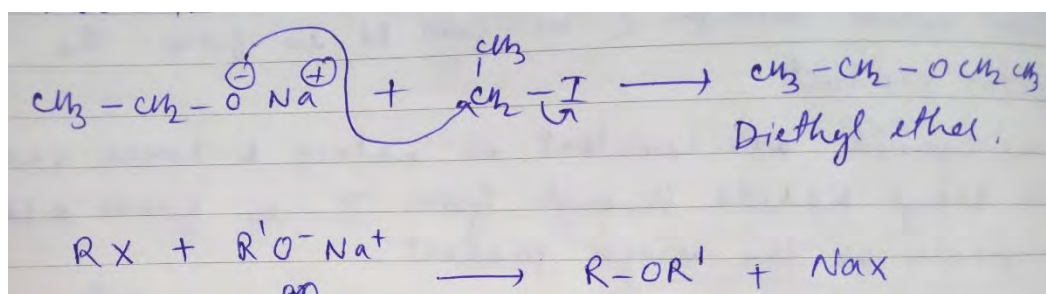 CH3
CH3 - CH2 - O⊖ Na⊕ + CH2 - I ⟶ CH3 - CH2 - OCH2CH3
Diethyl ether.
RX + R'O⁻Na⁺ ⟶ R-OR' + NaX